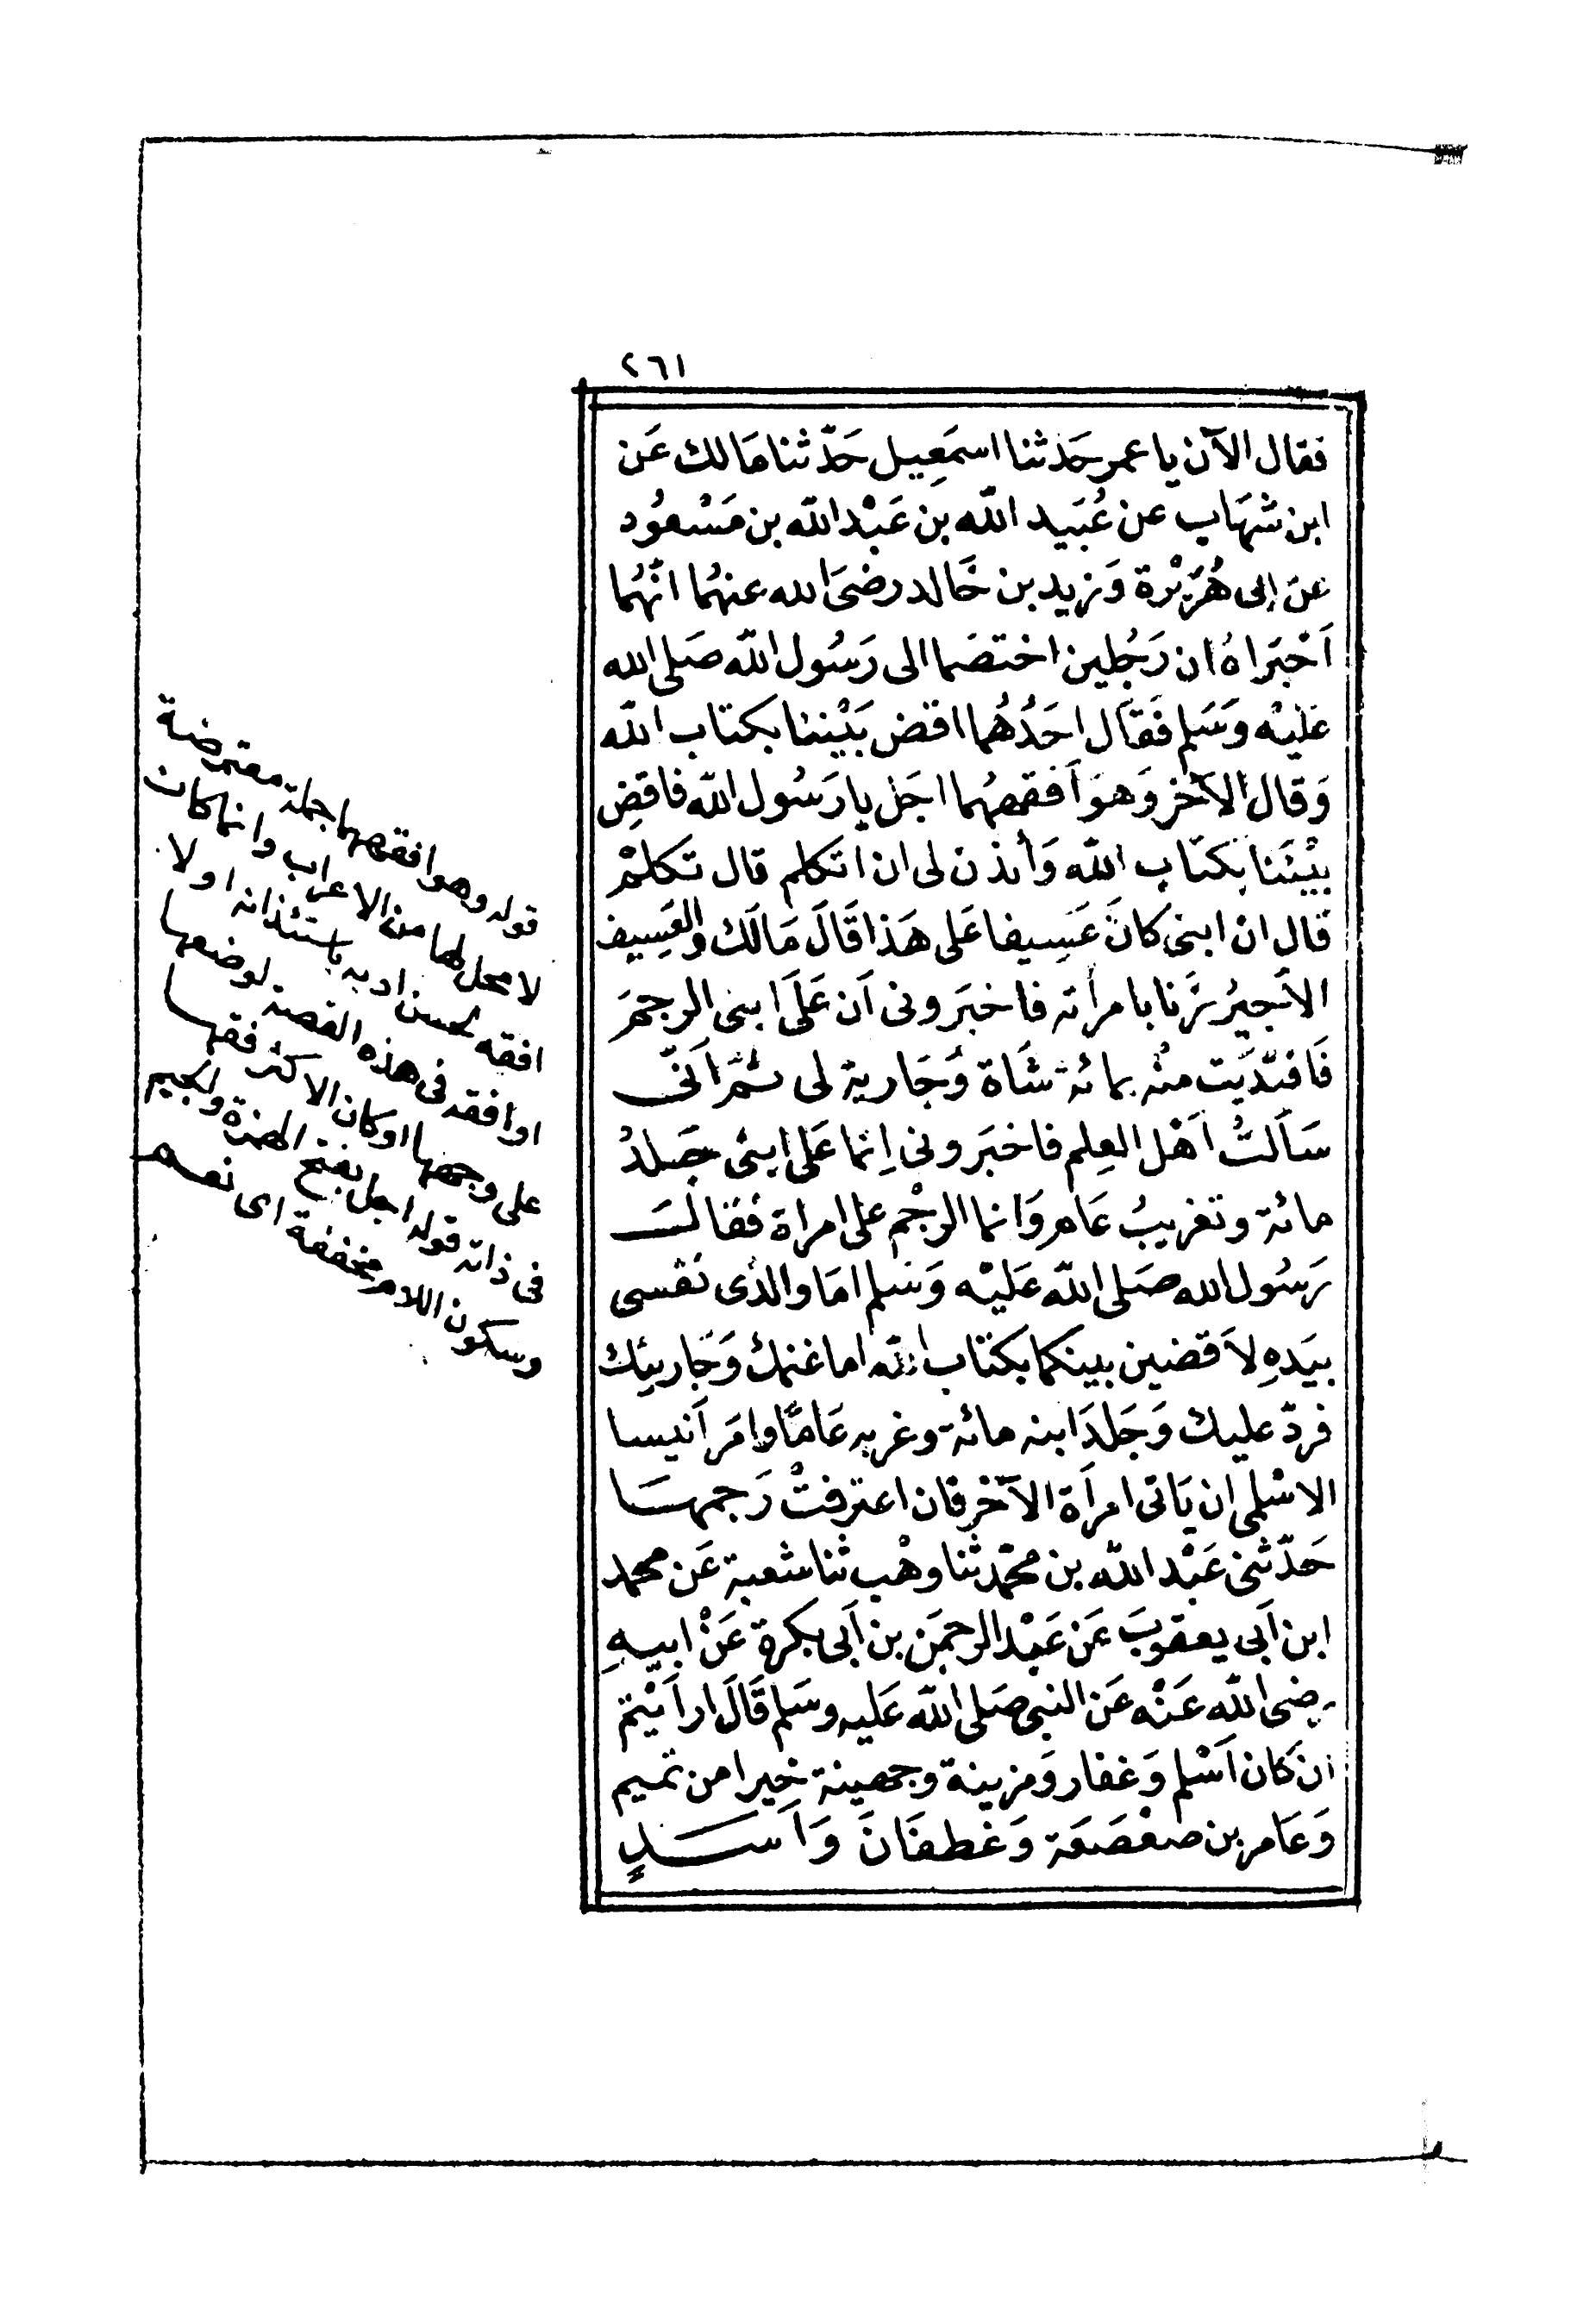 ٢٦١
فقال الآن يا عمر حَدثنا اسمَعِيل حَدّثنا مَالك عَن
ابن شهَاب عن عُبَيد الله بن عَبْد الله بن مَسْعُود
عنَ ابى هُرَيْرة وَزيد بن خَالد رضىَ الله عنهُما انّهُما
اَخْبَراهُ ان رَجُلين اختصَما الى رَسُول الله صَلى الله
عَليْه وَسَلم فَقَال احَدُهُما اقض بَيْننا بكتاب الله
وَقال الآخر وَهوَ اَفقههُما اجَل يا رَسُول الله فاقضِ
بيْنَنا بكتاب الله وَأذن لى ان اتكلم قال تكلمْ
قال انْ ابنى كانَ عَسِيفا عَلى هَذا قَالَ مَالَك وَالعَسِيف
الأجيرُ زَنا بامرأته فاخبَرونى اَن عَلَى ابنى الرجمَ
فَافتدَيت منْه بمائة شَاة وَجَارية لى ثمّ اَنّى
سَألتُ اَهْل العِلم فاخبَرونى اِنما عَلى ابنى جَلدُ
مائة وتغريبُ عَام وَانما الرجْم على امراة فقالَ
رَسُول الله صَلى الله عَليْه وَسَلم امَا والذى نفسى
بيَدهِ لَاقضين بينكما بكتاب الله اما غنمك وَجَاريتك
فردّ عليك وَجَلدَ ابنه مائة وغربه عَامًا وامَر اَنيسا
الاسْلمى ان يَاتى امرأة الآخر فان اعترفتْ رَجمهَا
حَدّثنى عَبْد الله بن محمّد ثنا وهْب ثنا شعبة عَن محمد
ابن اَبى يعقوبَ عَن عَبْد الرحمَن بن اَبى بكرة عَنْ ابيهِ
رضى الله عَنْه عَن النبى صَلى الله عَليه وسَلم قَالَ ارأيْتم
ان كَان اَسْلم وَغفار وَمزينة وجهينة خيرا من تميم
وَعَامر بن صعْصَعَة وَغطفَانَ وَاَسَدٍ
قوله وهو افقههما جملة معترضة
لا محل لها من الاعراب وانما كان
افقه لحسن ادبه باستئذانه اولا
او افقه فى هذه القصة لوضعها
على وجهها او كان الاكثر فقها
فى ذاته قوله اجل بفتح الهمزة والجيم
وسكون اللام مخففة اى نعم